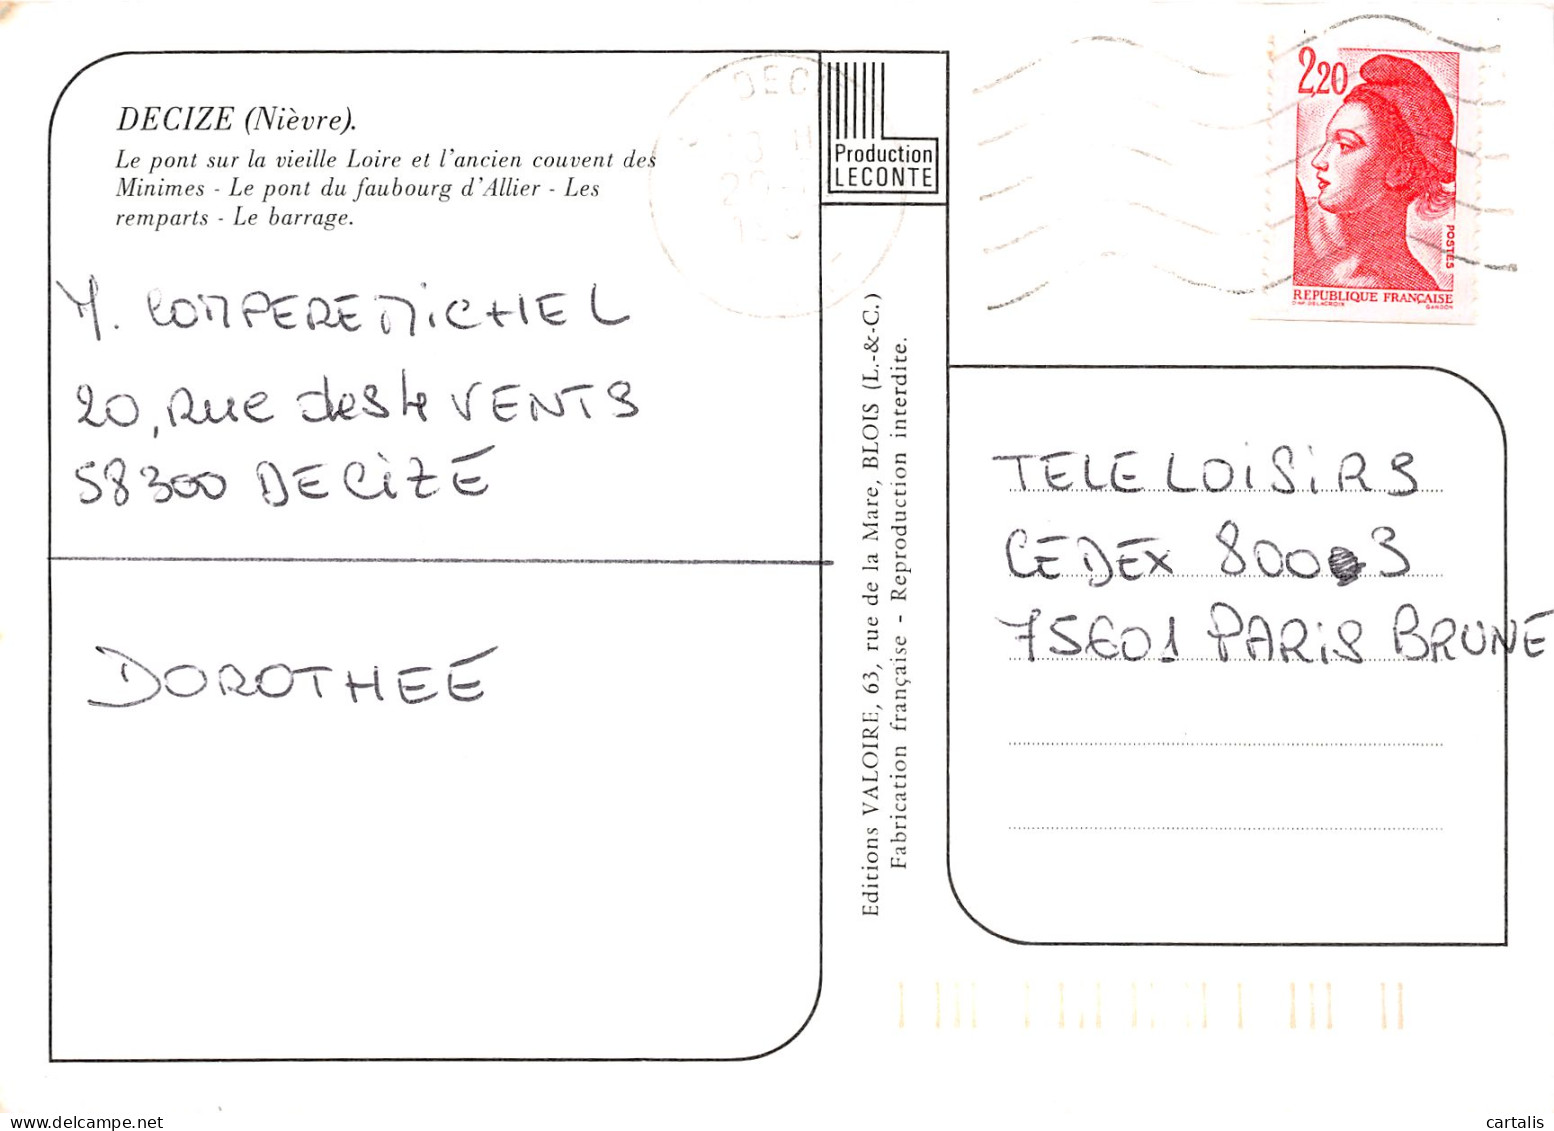 DECIZE (Nièvre).
Le pont sur la vieille Loire et l'ancien couvent des
Minimes - Le pont du faubourg d'Allier - Les
remparts - Le barrage.
M. COMPERE MICHEL
20, Rue des 4 VENTS
58300 DECIZE
DOROTHEE
Production
LECONTE
Editions VALOIRE, 63, rue de la Mare, BLOIS (L.-&-C.)
Fabrication française - Reproduction interdite.
2,20
POSTES
REPUBLIQUE FRANÇAISE
D'AP. DELACROIX GANDON
TELE LOISIRS
CEDEX 8003
75601 PARIS BRUNE
cartalis